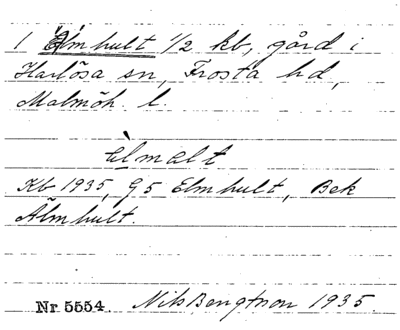 1 Elmhult 1/2 kb, gård i
Harlösa sn, Frosta hd,
Malmöh l.
èlmalt
Kb 1935, G5 Elmhult, Bek
Älmhult.
Nr 5554. Nils Bengtson 1935.